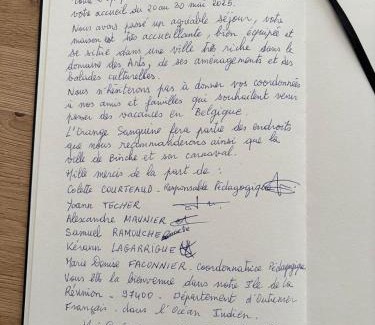 votre accueil du 20 au 30 mai 2025.
Nous avons passé un agréable séjour, votre
maison est très accueillante, bien équipée et
se situe dans une ville très riche dans le
domaine des Arts, de ses aménagements et des
balades culturelles.
Nous n'hésiterons pas à donner vos coordonnées
à nos amis et familles qui souhaitent venir
passer des vacances en Belgique.
L'Orange Sanguine fera partie des endroits
que nous recommanderons ainsi que la
ville de Binche et son carnaval.
Mille mercis de la part de :
Colette COURTEAUD - Responsable Pédagogique
Yoann TECHER
Alexandre MAUNIER
Samuel RAMOUCHE
Kérann LAGARRIGUE
Marie Denise FACONNIER. Coordonnatrice Pédagogique
Vous êtes la bienvenue dans notre Île de la
Réunion - 97400 - Département d'Outremer
Français - dans l'Océan Indien.